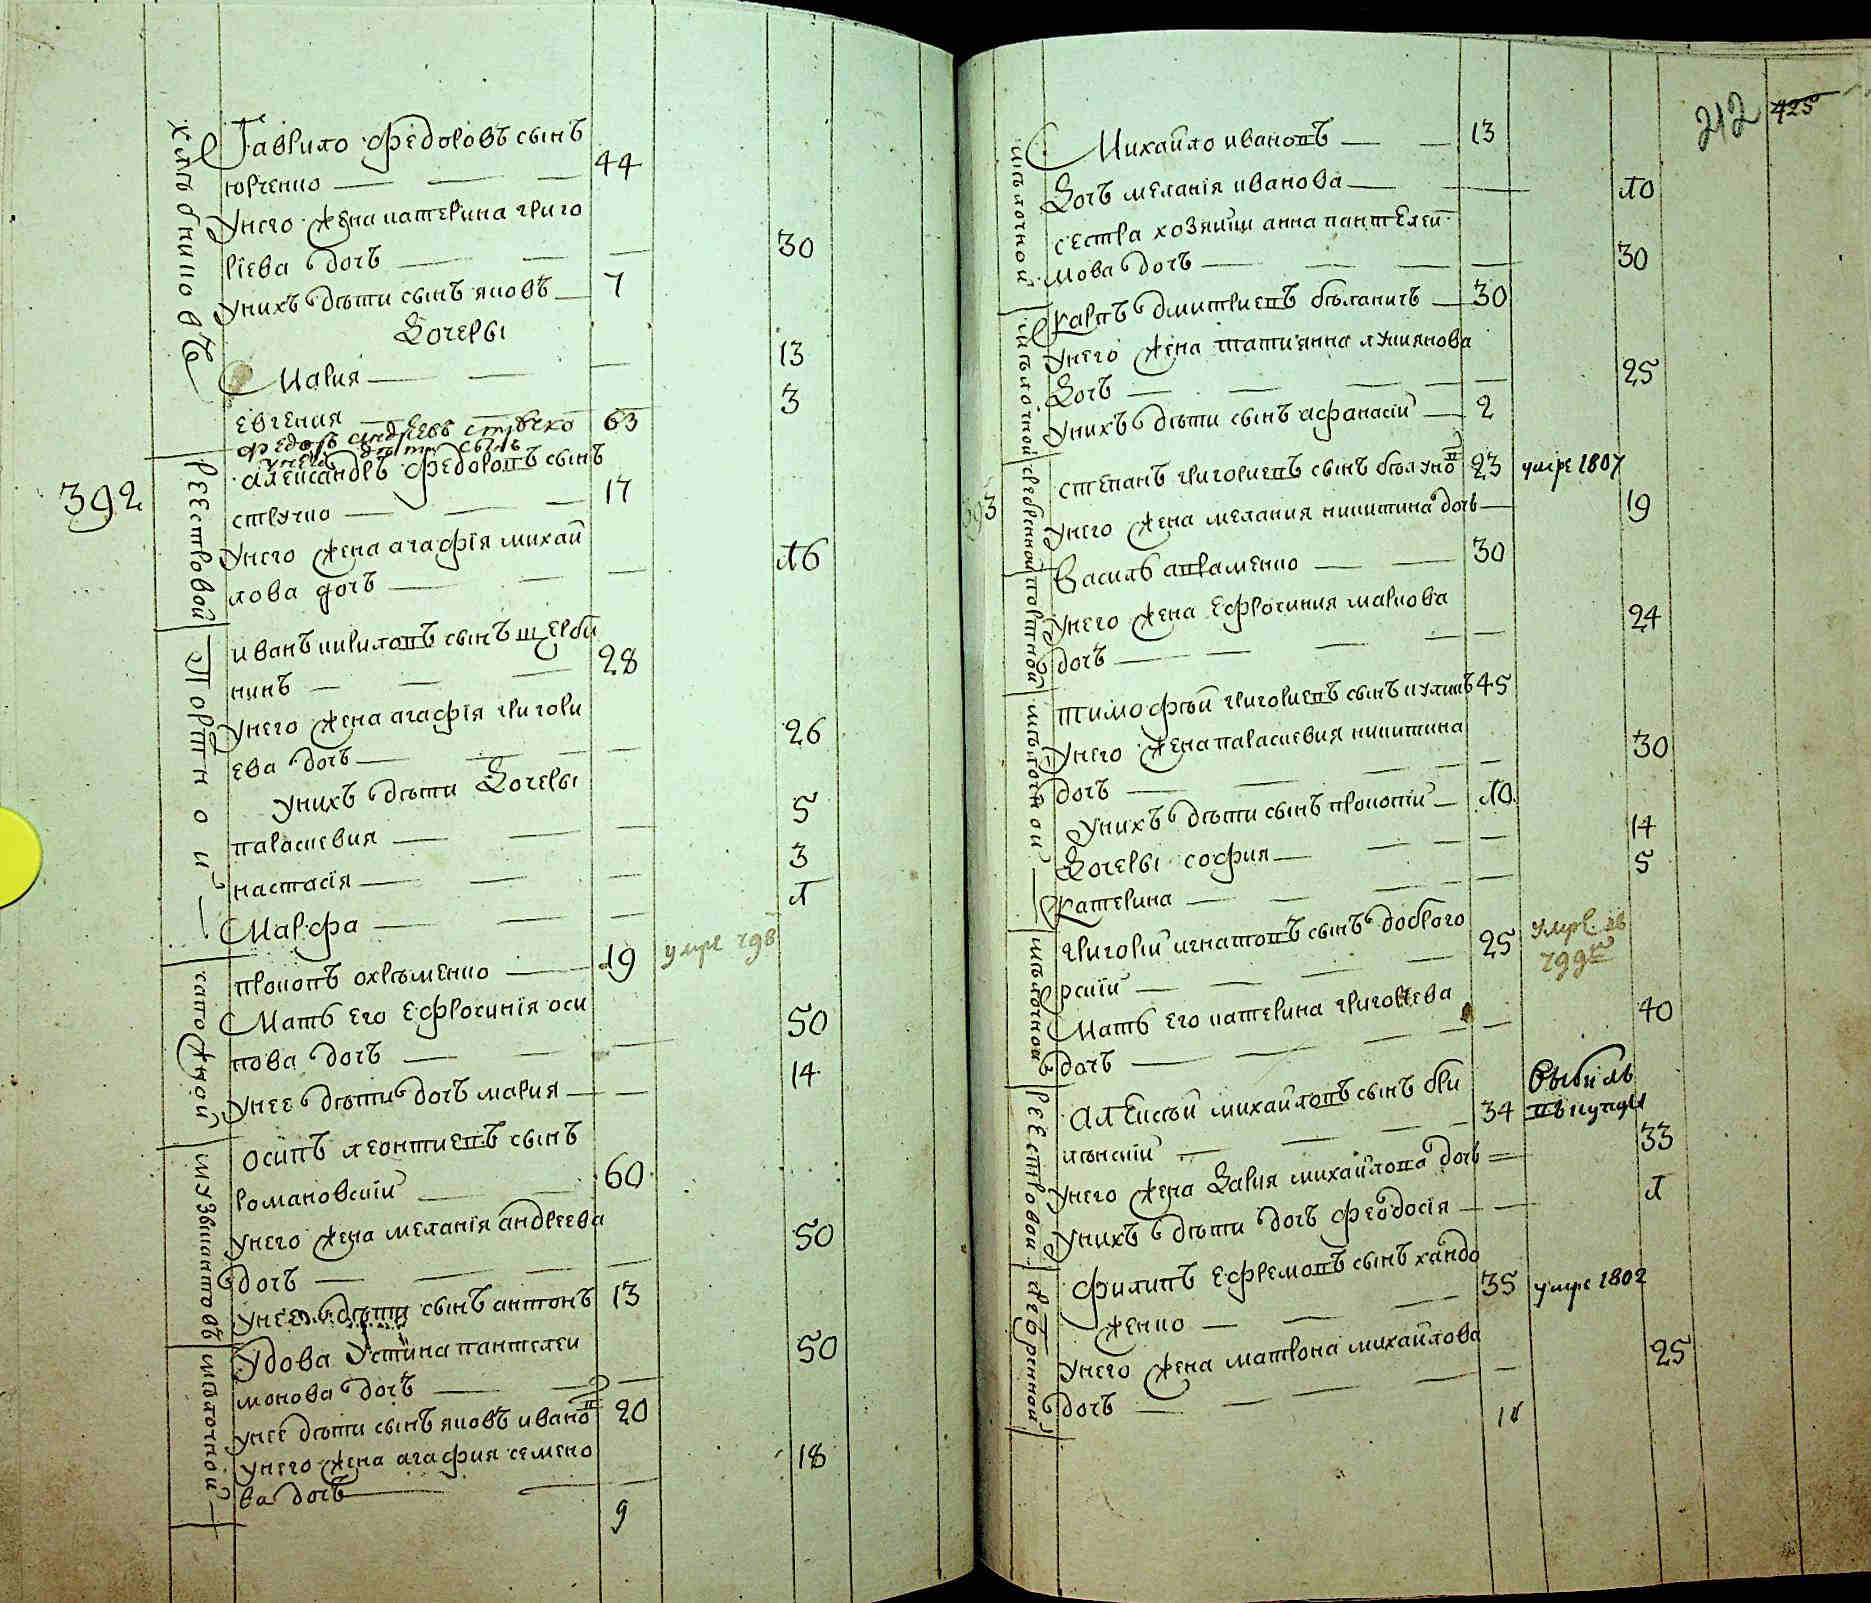 хлѣбниковъ
Гаврило Федоровъ сынъ
юрченко — 44
Унего жена катерина григо
ріева дочь — 30
Унихъ дѣти сынъ яковъ — 7
Дочеры
Мария — 13
евгения — 3
федоръ андреевъ стр 63
унего дѣти сынъ
392
Реестровой
александръ Федоровъ сынъ
17
Унего жена агафія михай
лова дочь — 16
Портной
иванъ кириловъ сынъ щерби
нинъ — 28
Унего жена агафія григори
ева дочь — 26
Унихъ дѣти Дочеры
параскевия — 5
настасія — 3
Марфа — 1
сапожной
прокопъ охрѣменко — 19 умре 798
Мать его Ефросинія оси
пова дочь — 50
Унее дѣти дочь мария — 14
музыкантовъ
осипъ леонтиевъ сынъ
романовскій — 60
Унего жена меланія андреева
дочь — 50
Унее дѣти сынъ антонъ 13
шкѣлочной
Удова Устина пантелеи
монова дочь — 50
унее дѣти сынъ яковъ ивановъ 20
унего жена агафия семено
ва дочь — 18
9
212 425
Михайло ивановъ — 13
Дочь меланія иванова — 10
сестра хозяики анна пантелеи
мова дочь — 30
Карпъ дмитриевъ бѣланичъ — 30
Унего жена татиянна лукиянова
Дочь — 25
Унихъ дѣти сынъ афанасій — 2
393
степанъ григориевъ сынъ 23 умре 1807
Унего жена мелания никитина дочь — 19
портной
Василь авраменко — 30
Унего жена Ефросиния маркова
дочь — 24
тимофѣй григориевъ сынъ кулинъ 45
Унего жена параскевия никитина
дочь — 30
Унихъ дѣти сынъ прокопій — 10
Дочеры софия — 14
Катерина — 5
григорій игнатовъ сынъ доброго
рскій — 25 умре въ
799м
Мать его катерина григоиева
дочь — 40
Реестровой
Алексѣй михайловъ сынъ бри
34 выбилъ
въ купци
Унего жена Дария михайлова дочь — 33
Унихъ дѣти дочь феодосія — 1
сребренной
филипъ Ефремовъ сынъ хандо
женко — 35 умре 1802
Унего жена матрона михайлова
дочь — 25